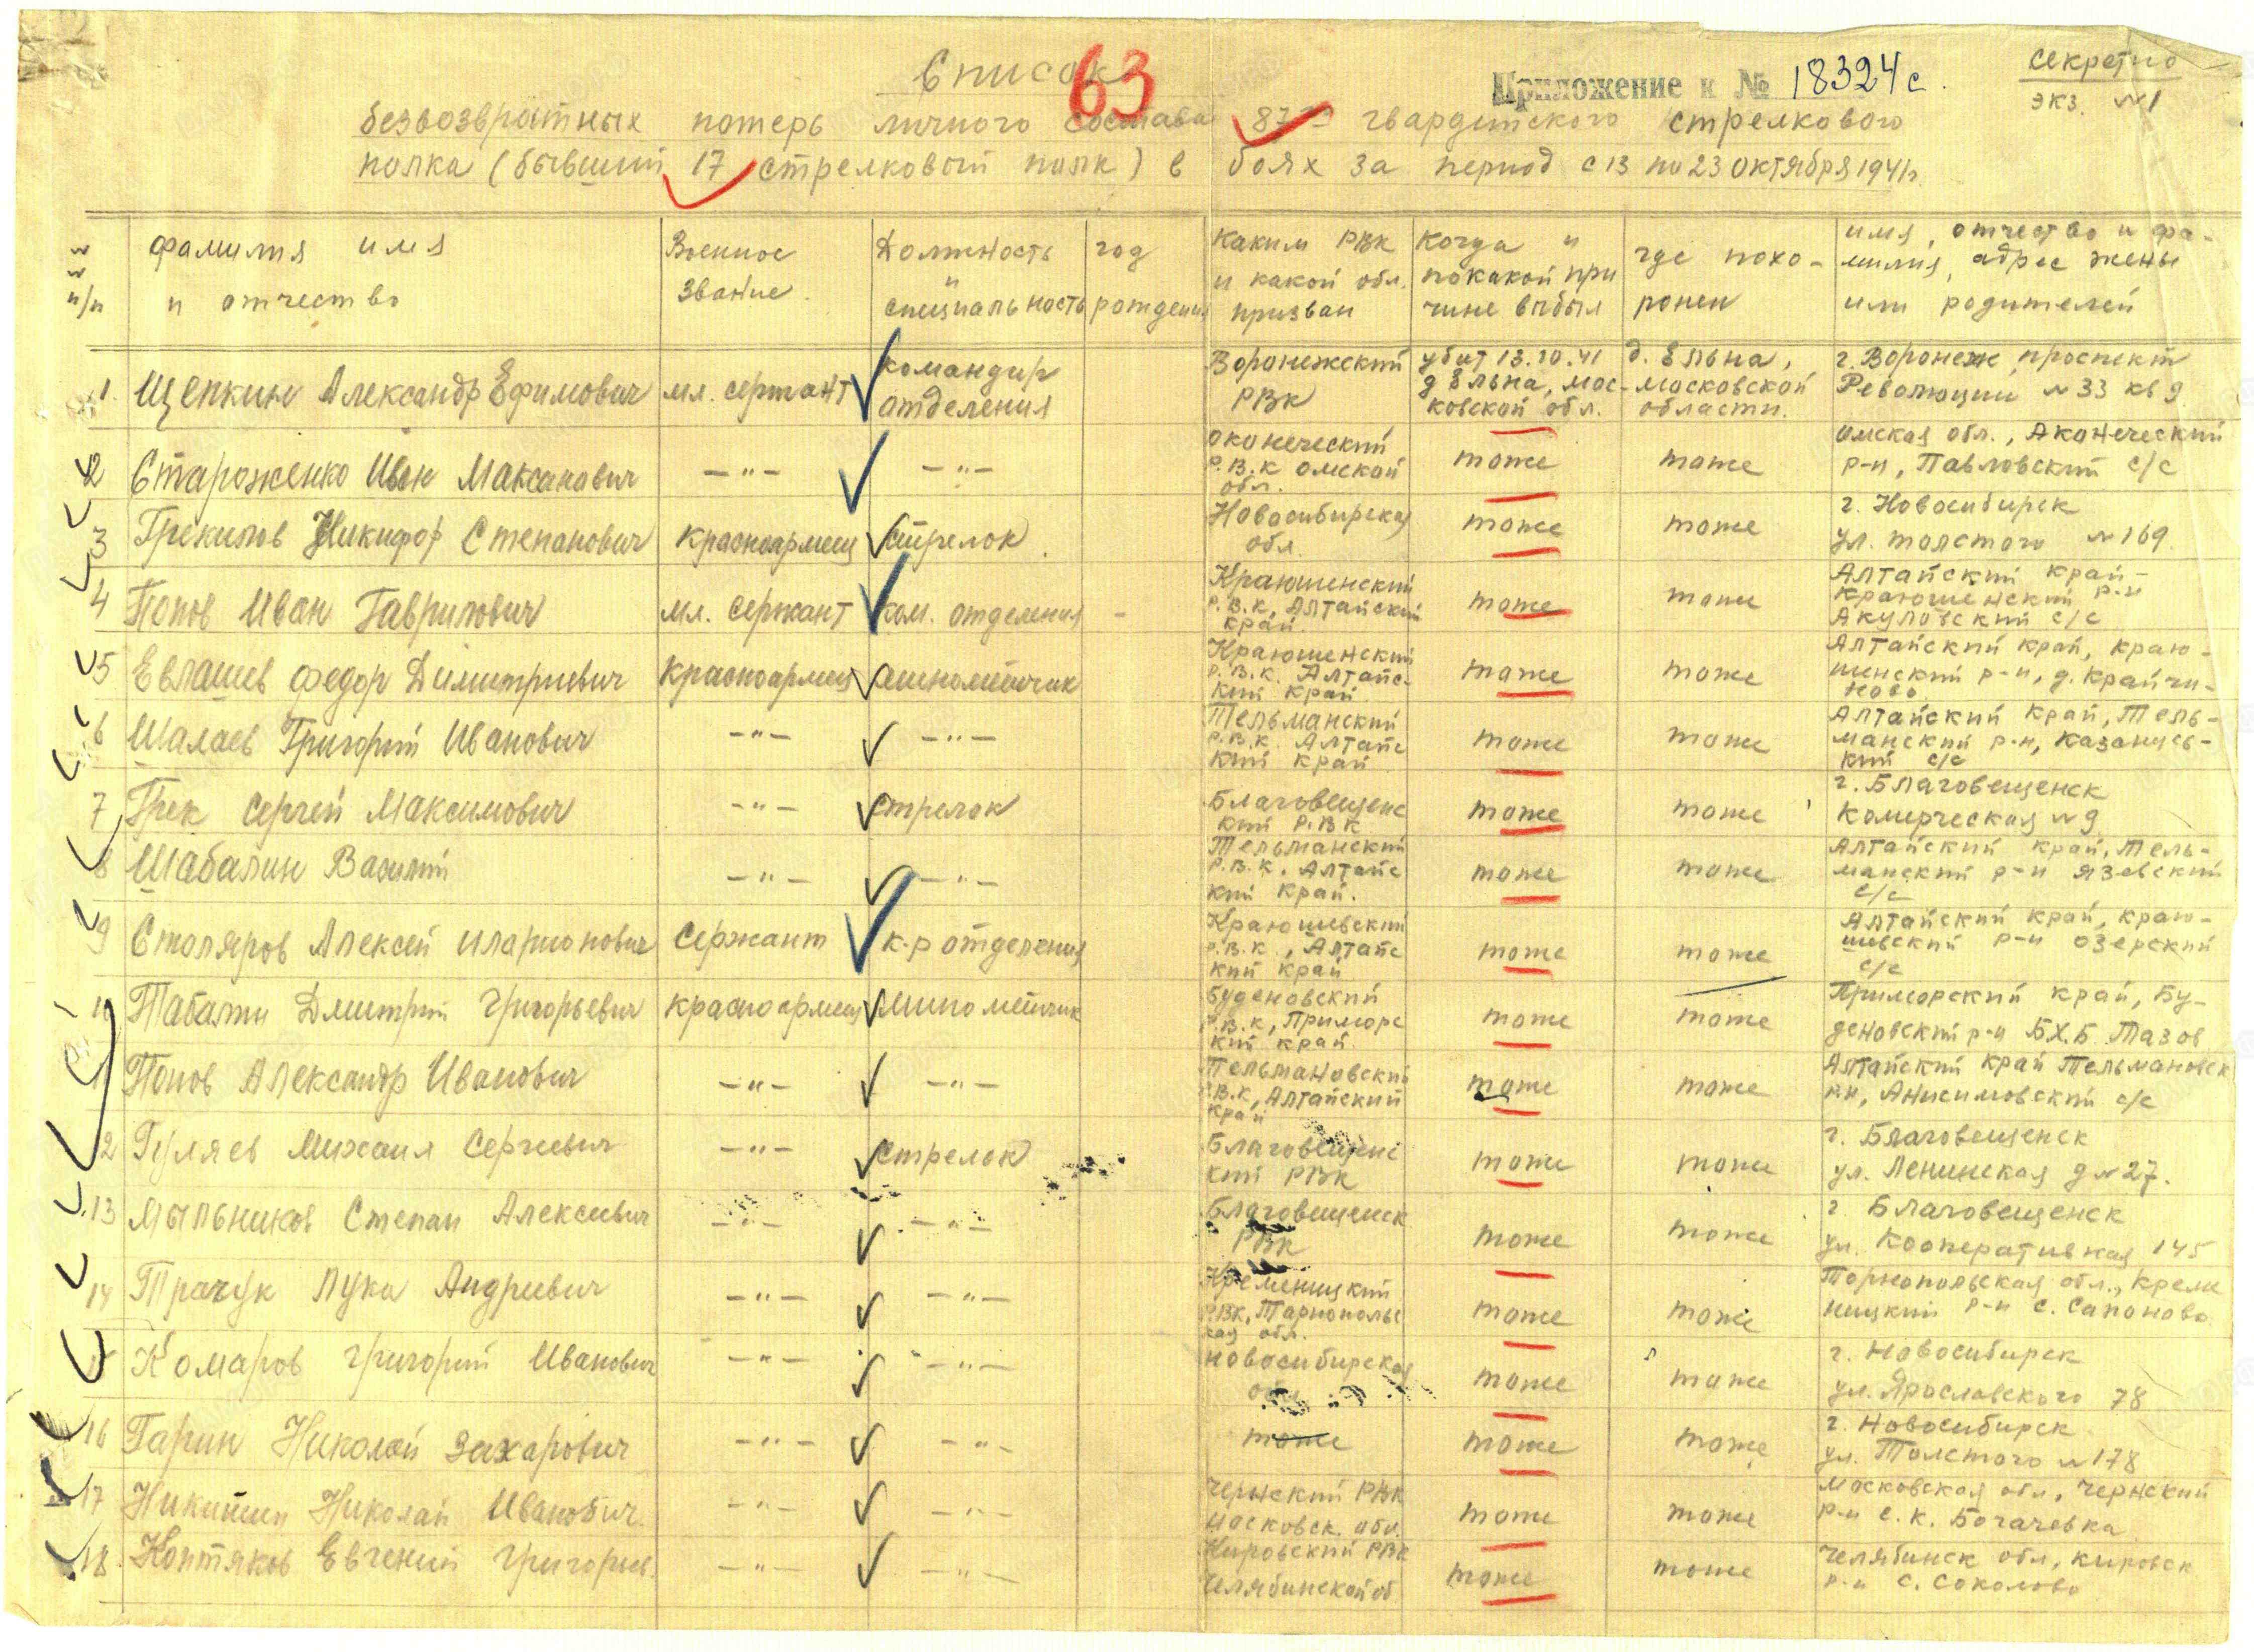 Список
63
Приложение к № 18324с.
Секретно
экз. №1
безвозвратных потерь личного состава 87го гвардейского стрелкового
полка (бывший 17 стрелковый полк) в боях за период с 13 по 23 октября 1941г.
№№ п/п
фамилия имя
и отчество
Военное
звание.
Должность
и
специальность
год
рождения
Каким РВК
и какой обл.
призван
Когда и
по какой при
чине выбыл
где похо-
ронен
имя, отчество и фа-
милия, адрес жены
или родителей
1. Щепкин Александр Ефимович
мл. сержант
командир
отделения
Воронежский
РВК
убит 13.10.41
д Ельна, мос-
ковской обл.
д. Ельна,
московской
области.
г. Воронеж, проспект
Революции №33 кв 9
2 Стороженко Иван Максимович
—"—
—"—
Оконеческий
Р.В.К Омской
обл.
тоже
тоже
Омская обл., Аконеческий
р-н, Павловский с/с
3 Грекилов Никифор Степанович
красноармеец
стрелок.
Новосибирская
обл.
тоже
тоже
г. Новосибирск
ул. Толстого №169
4 Попов Иван Гаврилович
мл. сержант
ком. отделения
-
Краюшенский
Р.В.К, Алтайский
край.
тоже
тоже
Алтайский край-
Краюшенский р-н
Акуловский с/с
5 Евлашев Федор Димитриевич
красноармеец
минометчик
Краюшенский
Р.В.К. Алтайс-
кий край
тоже
тоже
Алтайский край, Краю-
шенский р-н, д. Крайчи-
ново
6 Шалаев Григорий Иванович
—"—
—"—
Тельманский
Р.В.К. Алтайс
кий край
тоже
тоже
Алтайский край, Тель-
манский р-н, Казанцев-
кий с/с
7 Грек Сергей Максимович
—"—
стрелок
Благовещенс
кий Р.В К
тоже
тоже
г. Благовещенск
Комерческая №9
8 Шабалин Василий
—"—
—"—
Тельманский
Р.В.К. Алтайс
кий край.
тоже
тоже
Алтайский край, Тель-
манский р-н Язевский
с/с
9 Столяров Алексей Иларионович
Сержант
к-р отделения
Краюшевский
Р.В.К., Алтайс
кий край
тоже
тоже
Алтайский край, Краю-
шевский р-н Озерский
с/с
10 Табалин Дмитрий Григорьевич
красноармеец
минометчик
Буденовский
Р.В.К, Приморс
кий край.
тоже
тоже
Приморский край, Бу-
деновский р-н Б.Х.Б Тазов
11 Попов Александр Иванович
—"—
—"—
Тельмановский
Р.В.К, Алтайский
край
тоже
тоже
Алтайский край Тельмановск
рн, Анисимовский с/с
12 Гуляев Михаил Сергеевич
—"—
стрелок
Благовещенс
кий РВК
тоже
тоже
г. Благовещенск
ул. Ленинская д №27.
13 Мыльников Степан Алексеевич
—"—
—"—
Благовещенск
РВК
тоже
тоже
г. Благовещенск
ул. Кооперативная 145
14 Трачук Лука Андреевич
—"—
—"—
Кременицкий
РВК, Тарнопольс
кая обл.
тоже
тоже
Торнопольская обл., Креме
ницкий р-н с. Сапоново
15 Комаров Григорий Иванович
—"—
—"—
Новосибирская
обл
тоже
тоже
г. Новосибирск
ул. Ярославского 78
16 Гарин Николай Захарович
—"—
—"—
тоже
тоже
тоже
г. Новосибирск
ул. Толстого №178
17 Никитин Николай Иванович.
—"—
—"—
Чернский РВК
московск. обл.
тоже
тоже
Московская обл, Чернский
р-н с. к. Богачевка
18. Коптяков Евгений Григорьев.
—"—
—"—
Кировский РВК
Челябинской об
тоже
тоже
Челябинск обл, Кировск
р-н с. Соколово